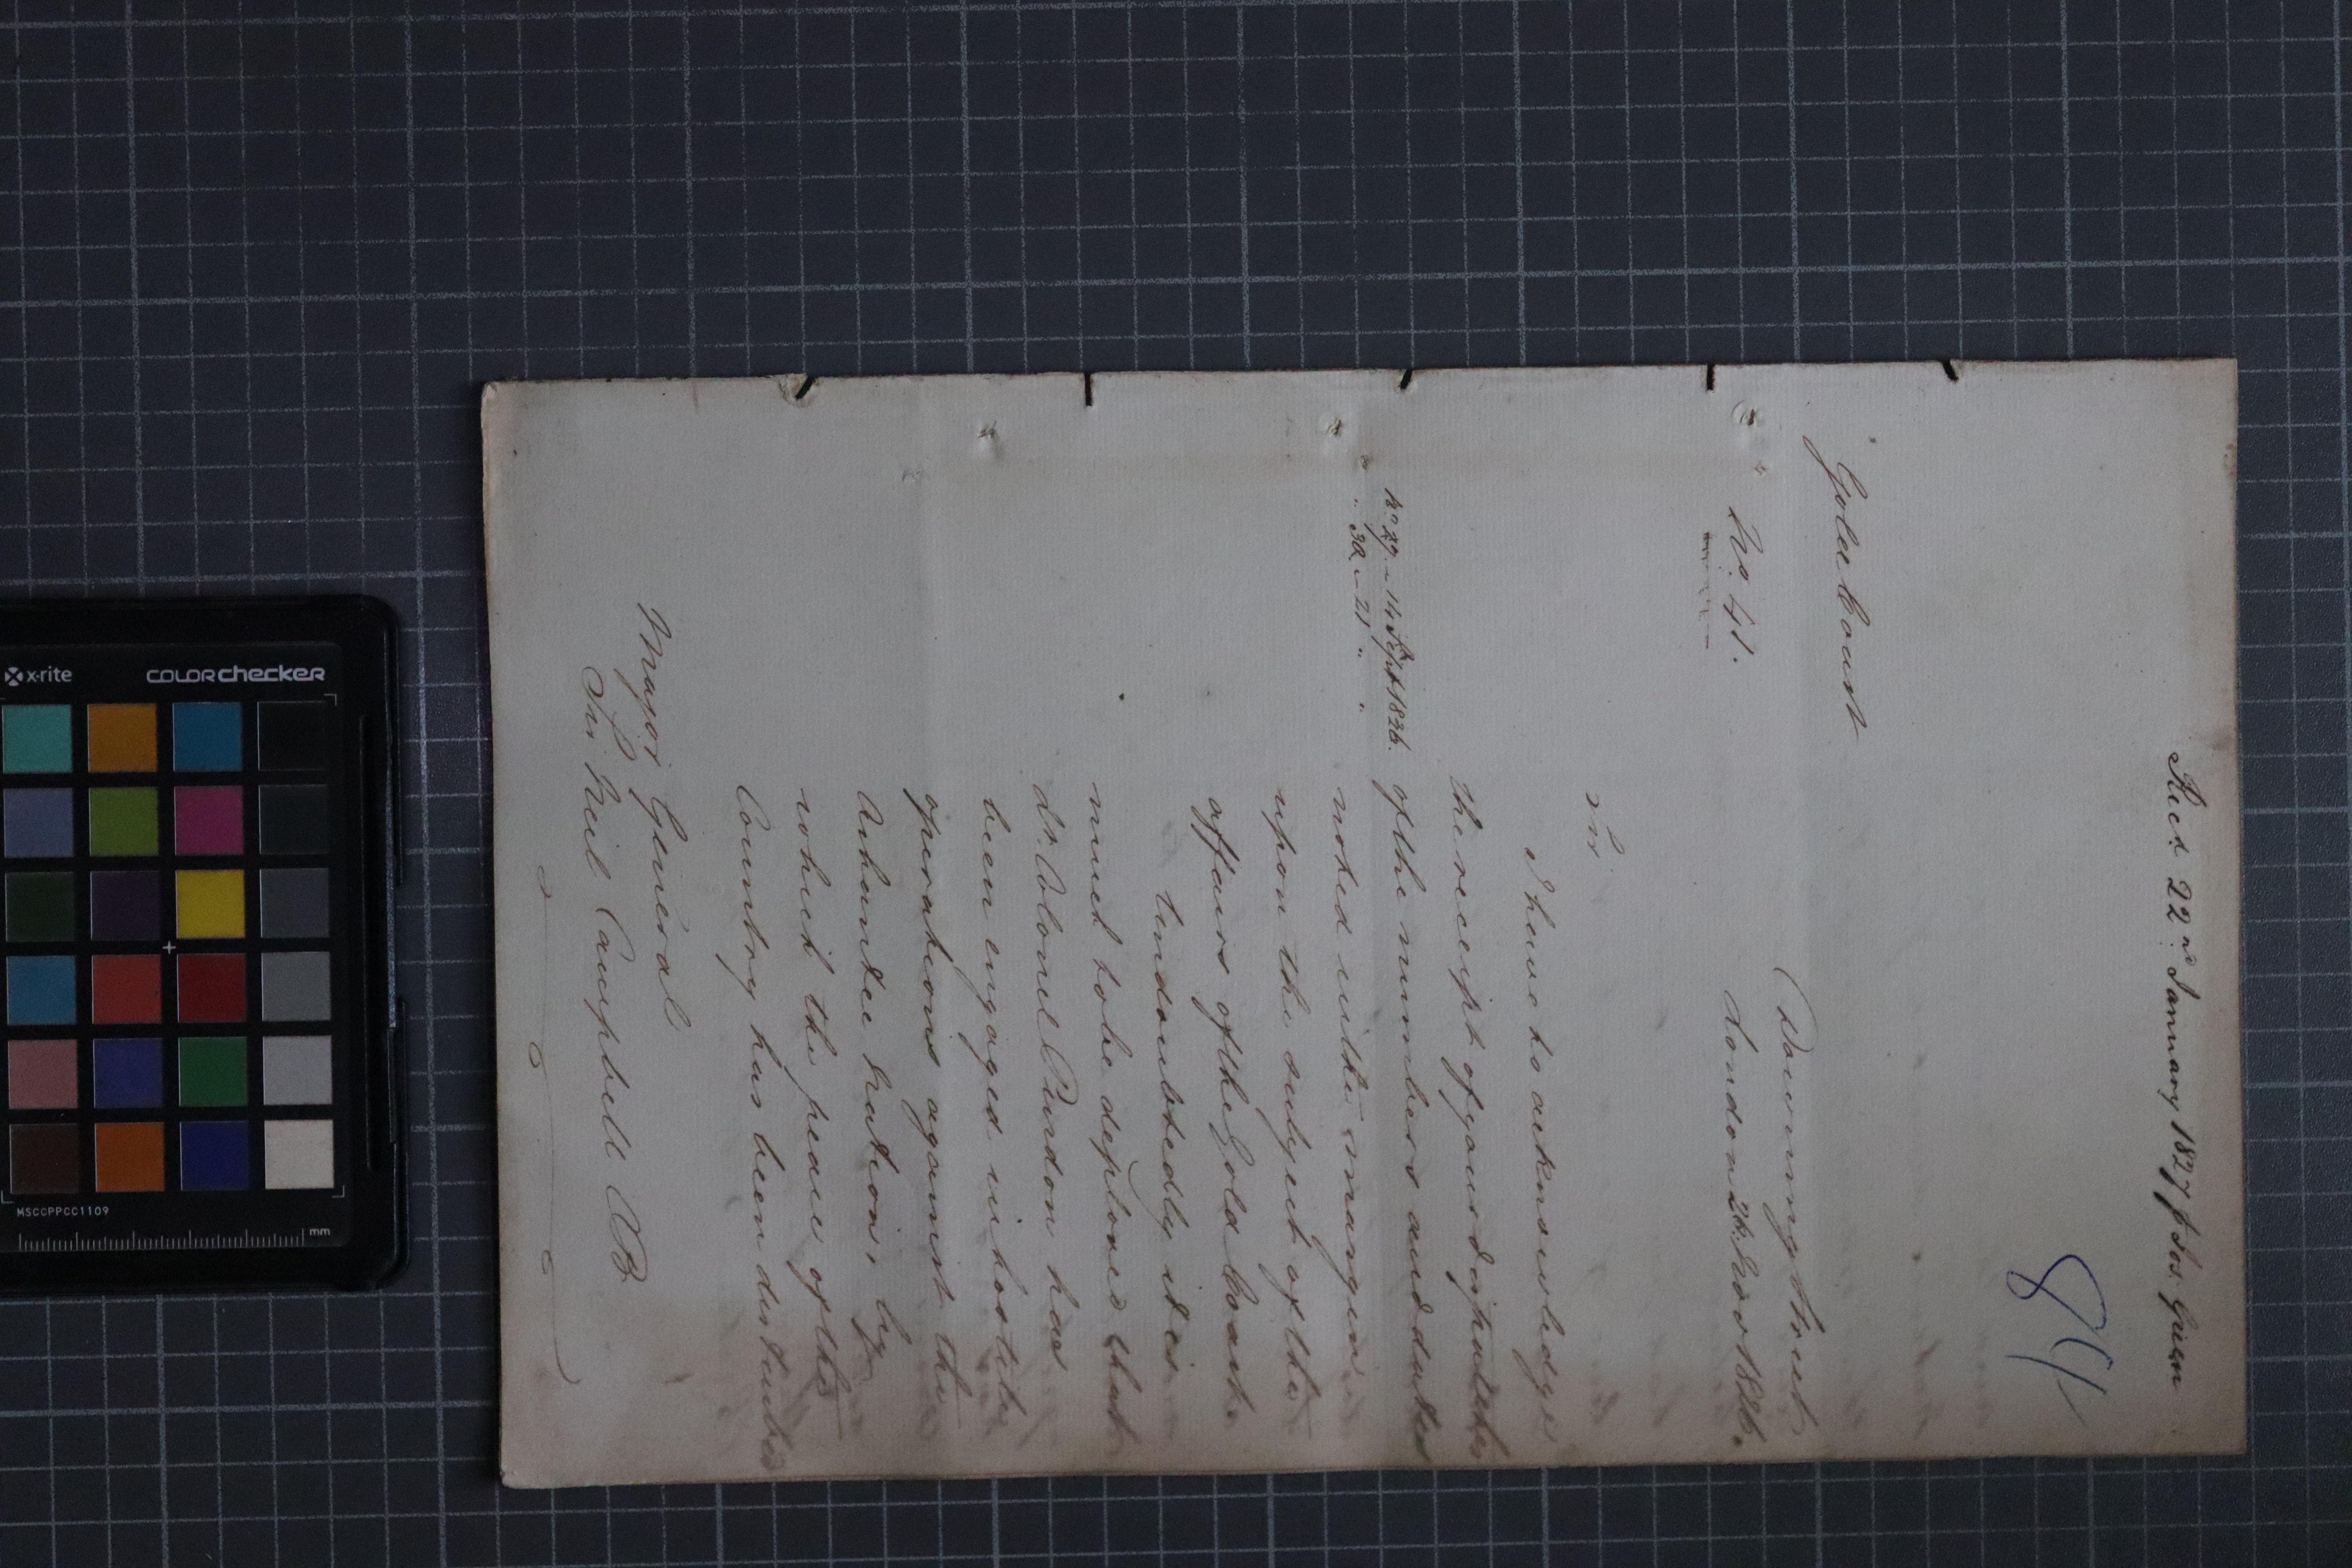 Recd. 22nd January 1827 p Jos. Green
84
Gold Coast
Downing Street
No. 41.
London 24 Novr 1826.
Sir
I have to acknowledge
the receipt of your dispatches
No. 29 - 14 Septr 1826.
of the numbers and dates
" 30 - 21 " "
noted in the margin
upon the subject of the
affairs of the Gold Coast.
Undoubtedly it is
much to be deplored that
Lt. Colonel Purdon has
been engaged in hostile
operations against the
Ashantee Nation, by
which the peace of the
Country has been disturbed
Major General
Sir Neil Campbell CB
x-rite
COLORchecker
MSCCPPCC1109
mm